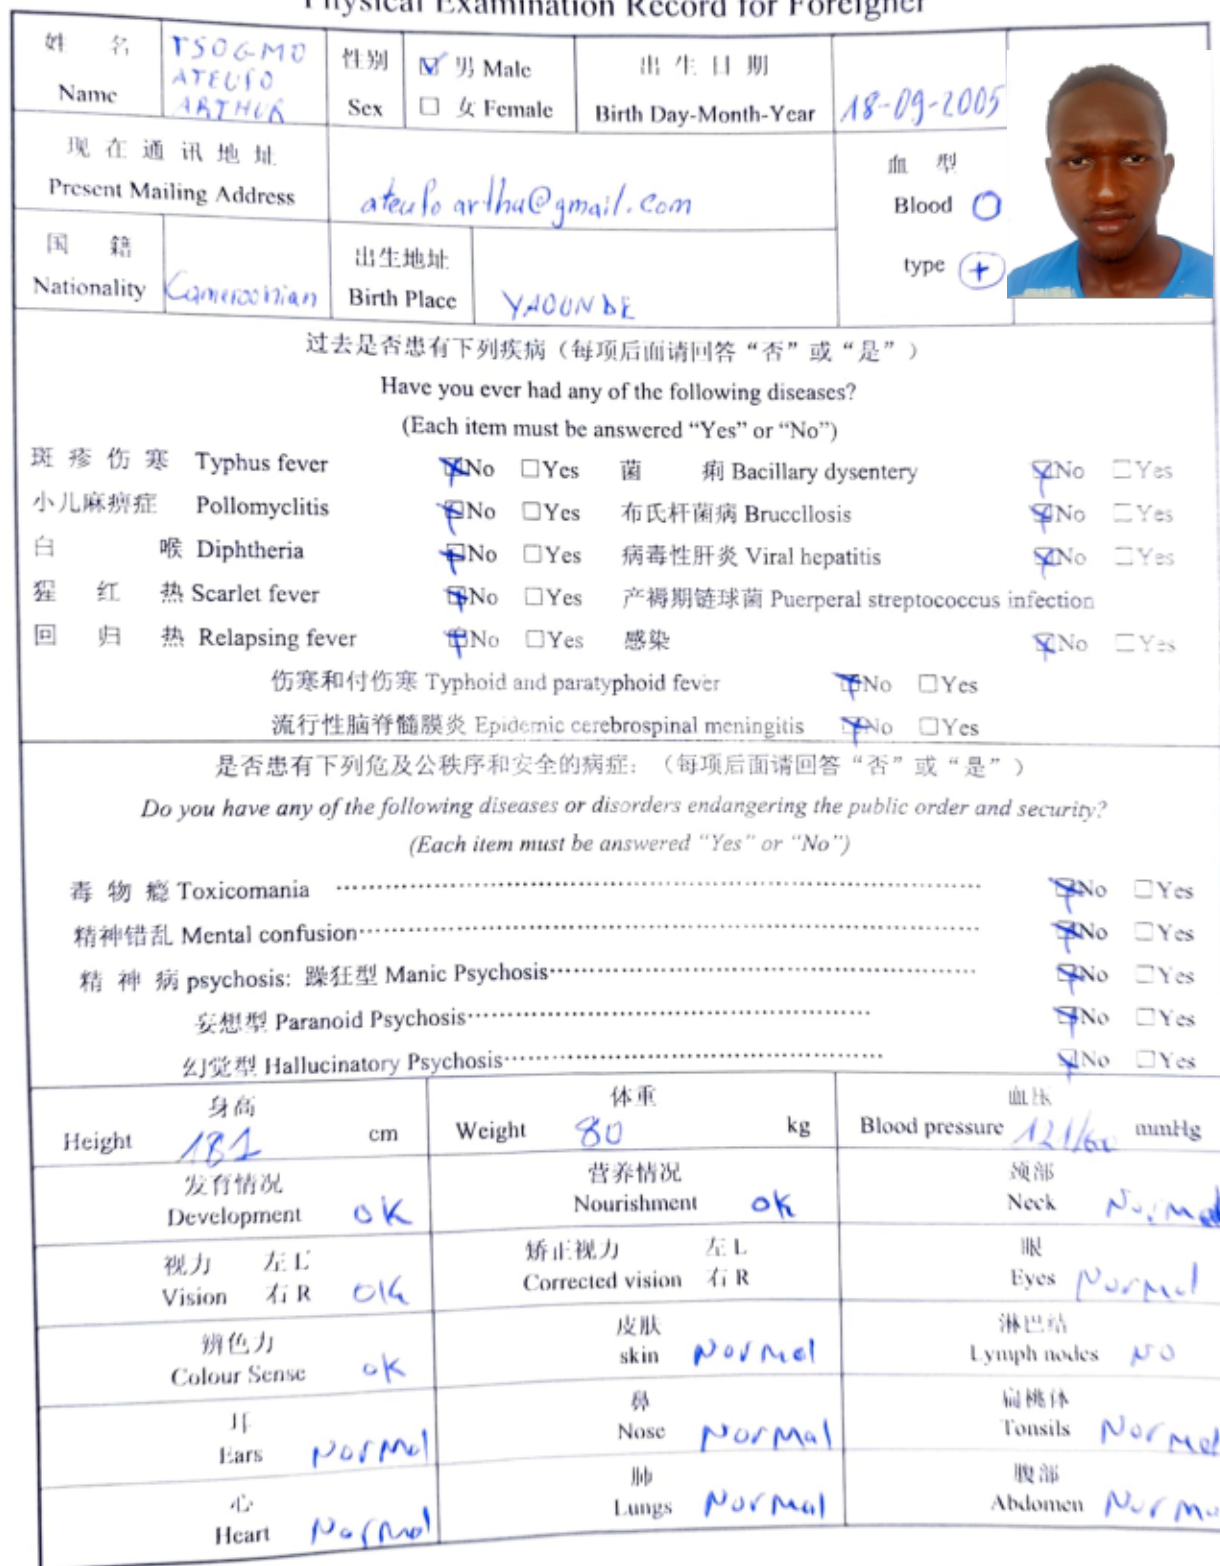 Physical Examination Record for Foreigner
姓 名 Name TSOGMO ATEUFO ARTHUR 性别 Sex ☑ 男 Male □ 女 Female 出生日期 Birth Day-Month-Year 18-09-2005
现在通讯地址
Present Mailing Address ateufo arthu@gmail.com 血型 Blood type O +
国籍 Nationality Cameroonian 出生地址 Birth Place YAOUNDE
过去是否患有下列疾病（每项后面请回答“否”或“是”）
Have you ever had any of the following diseases?
(Each item must be answered “Yes” or “No”)
斑疹伤寒 Typhus fever ☑No □Yes 菌 痢 Bacillary dysentery ☑No □Yes
小儿麻痹症 Pollomyclitis ☑No □Yes 布氏杆菌病 Bruccllosis ☑No □Yes
白 喉 Diphtheria ☑No □Yes 病毒性肝炎 Viral hepatitis ☑No □Yes
猩 红 热 Scarlet fever ☑No □Yes 产褥期链球菌 Puerperal streptococcus infection
回 归 热 Relapsing fever ☑No □Yes 感染 ☑No □Yes
伤寒和付伤寒 Typhoid and paratyphoid fever ☑No □Yes
流行性脑脊髓膜炎 Epidemic cerebrospinal meningitis ☑No □Yes
是否患有下列危及公秩序和安全的病症：（每项后面请回答“否”或“是”）
Do you have any of the following diseases or disorders endangering the public order and security?
(Each item must be answered “Yes” or “No”)
毒物瘾 Toxicomania ☑No □Yes
精神错乱 Mental confusion ☑No □Yes
精神病 psychosis: 躁狂型 Manic Psychosis ☑No □Yes
妄想型 Paranoid Psychosis ☑No □Yes
幻觉型 Hallucinatory Psychosis ☑No □Yes
身高 Height 181 cm 体重 Weight 80 kg 血压 Blood pressure 121/60 mmHg
发育情况 Development OK 营养情况 Nourishment OK 颈部 Neck Normal
视力 Vision 左 L 右 R OK 矫正视力 Corrected vision 左 L 右 R 眼 Eyes Normal
辨色力 Colour Sense OK 皮肤 skin Normal 淋巴结 Lymph nodes NO
耳 Ears Normal 鼻 Nose Normal 扁桃体 Tonsils Normal
心 Heart Normal 肺 Lungs Normal 腹部 Abdomen Norma